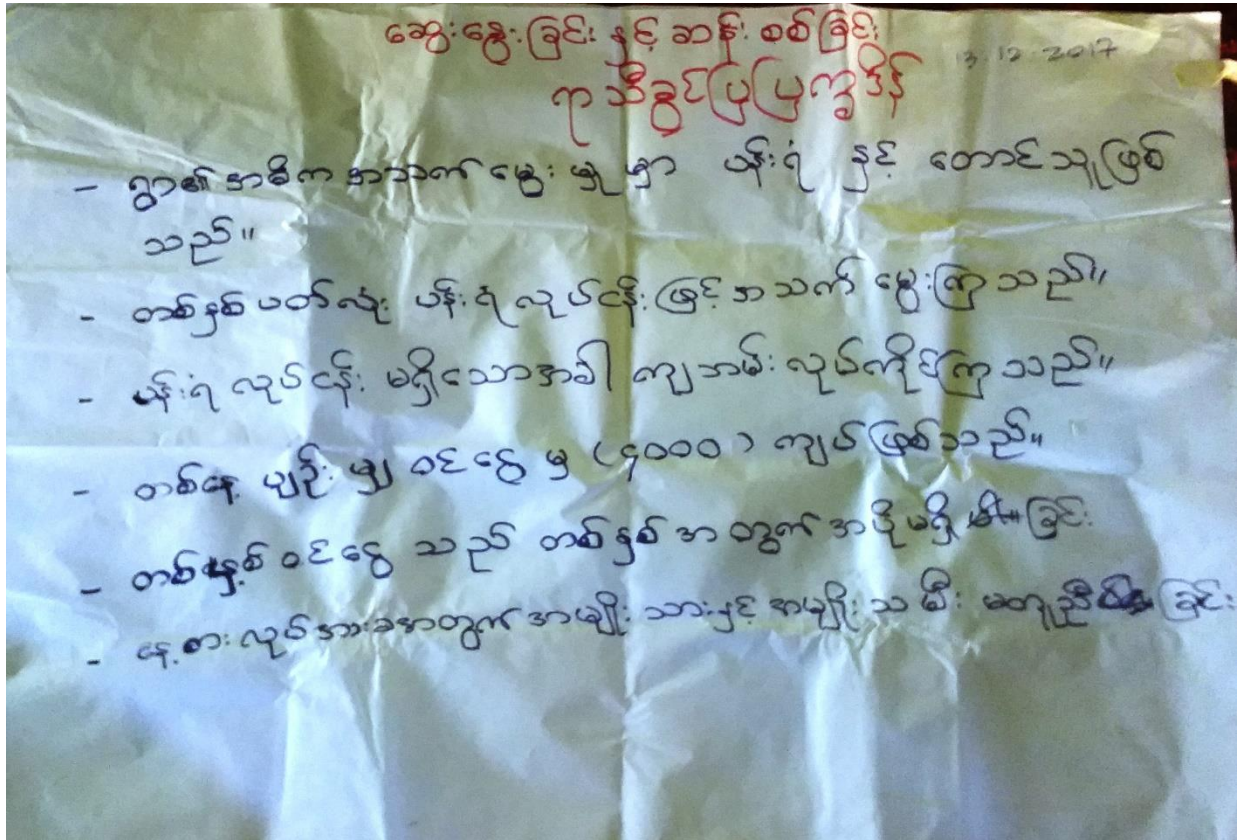 ဆွေးနွေးခြင်း နှင့် ဆန်းစစ်ခြင်း
13.12.2017
ရာသီခွင်ပြပြက္ခဒိန်
- ရွာ၏ အဓိက အသက်မွေးမှုမှာ ပန်းရံ နှင့် တောင်သူဖြစ်
သည်။
- တစ်နှစ်ပတ်လုံး ပန်းရံလုပ်ငန်းဖြင့် အသက်မွေးကြသည်။
- ပန်းရံလုပ်ငန်း မရှိသောအခါ ကျဘမ်းလုပ်ကိုင်ကြသည်။
- တစ်နေ့ ပျဉ်းမျှ ဝင်ငွေမှ (၄၀၀၀) ကျပ်ဖြစ်သည်။
- တစ်နှစ်ဝင်ငွေ သည် တစ်နှစ်အတွက် အပိုမရှိခြင်း
- နေ့စားလုပ်အားခအတွက် အမျိုးသားနှင့် အမျိုးသမီး မတူညီခြင်း